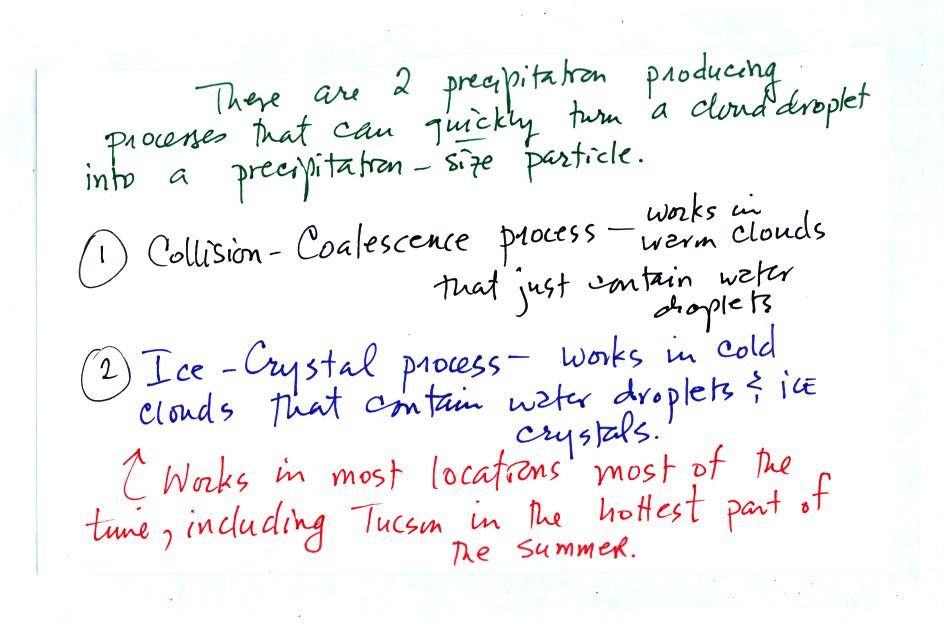 There are 2 precipitation producing
processes that can quickly turn a cloud droplet
into a precipitation - size particle.
① Collision - Coalescence process - works in
warm clouds
that just contain water
droplets
② Ice - Crystal process - works in cold
clouds that contain water droplets & ice
crystals.
↑ Works in most locations most of the
time, including Tucson in the hottest part of
the summer.